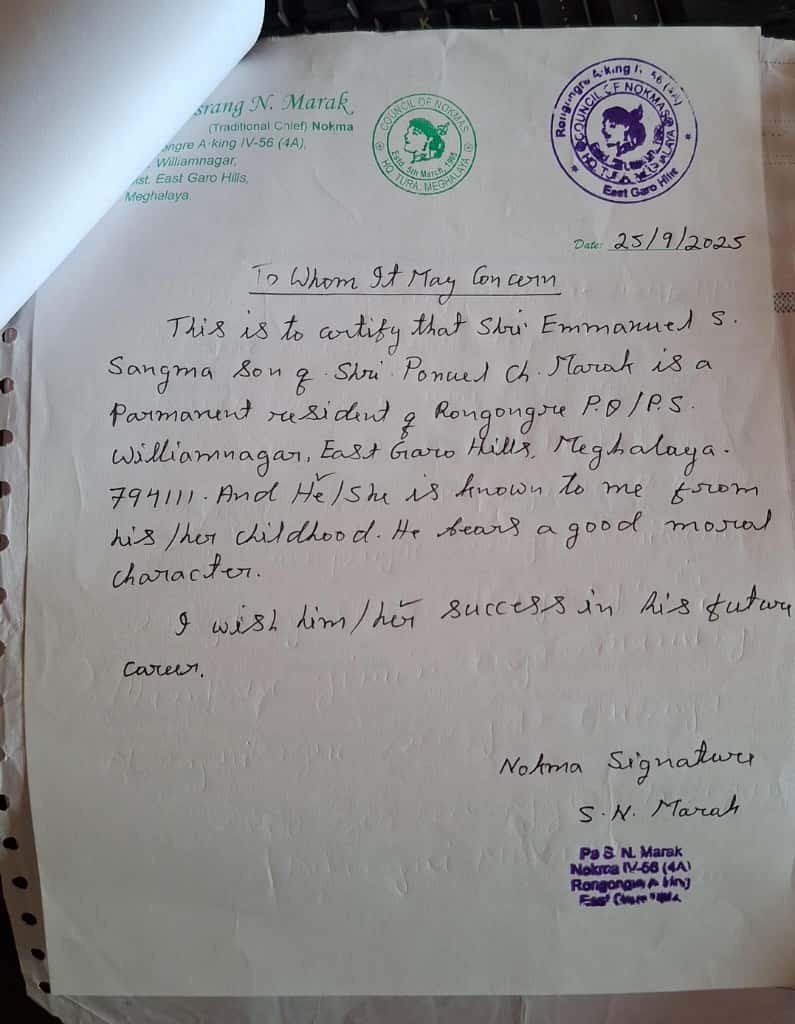 srang N. Marak
(Traditional Chief) Nokma
ongre A·king IV-56 (4A),
Williamnagar,
ist. East Garo Hills,
Meghalaya.
COUNCIL OF NOKMAS
Estd. 5th March, 1968
HQ. TURA, MEGHALAYA
Rongongre A·king IV-56 (4A)
COUNCIL OF NOKMAS
East Garo Hills
Date: 25/9/2025
To Whom It May Concern
This is to certify that Shri Emmanuel S.
Sangma son of Shri Ponuel Ch. Marak is a
Parmanent resident of Rongongre P.O/P.S.
Williamnagar, East Garo Hills, Meghalaya-
794111. And He/She is known to me from
his/her childhood. He bears a good moral
character.
I wish him/her success in his future
career.
Nokma Signature
S. N. Marak
Pa S. N. Marak
Nokma IV-56 (4A)
Rongongre A·king
East